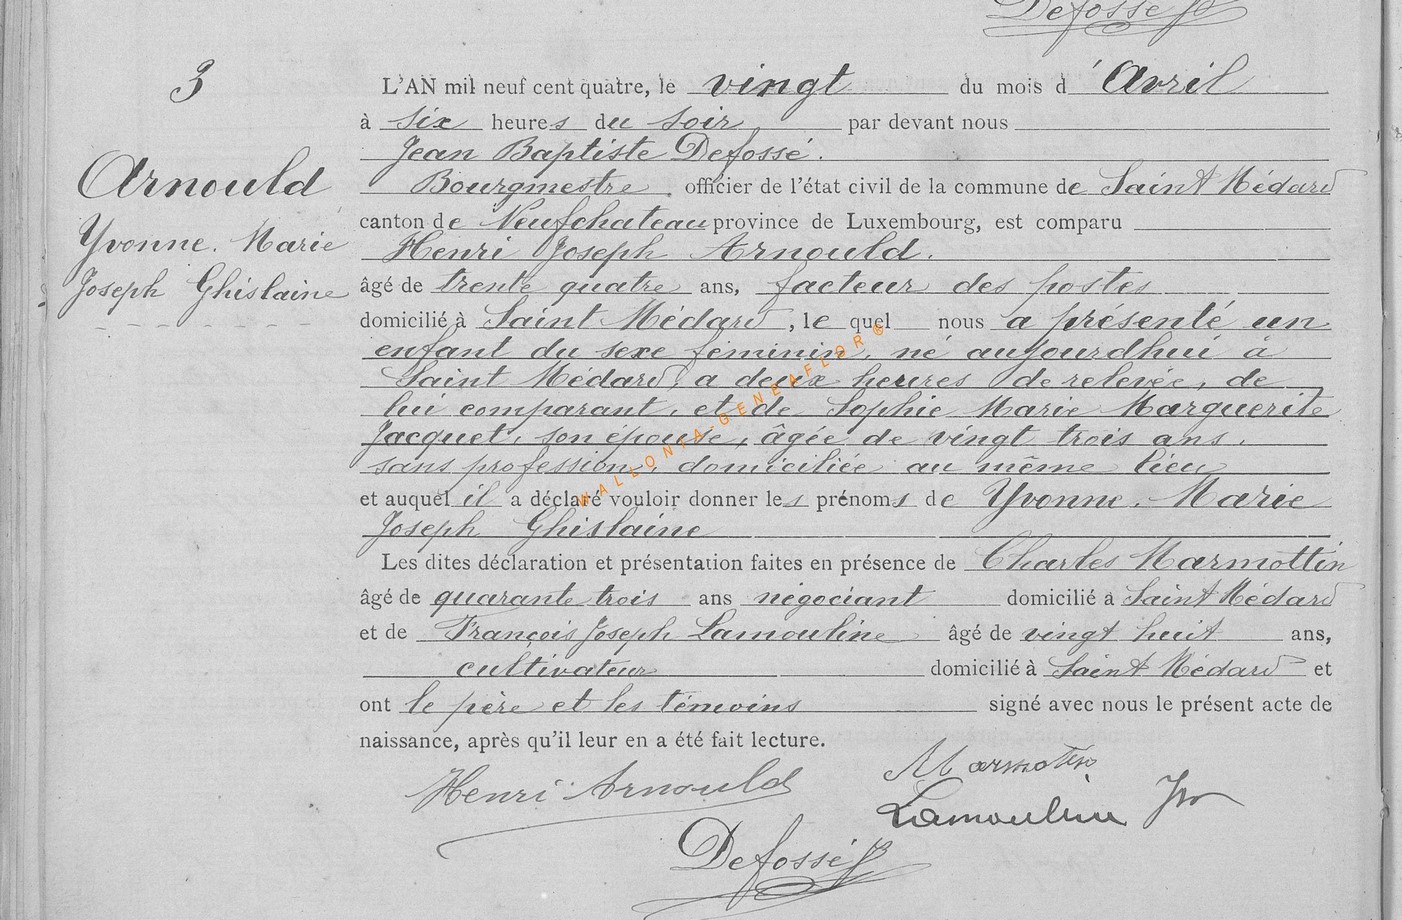 Defossé JB
3
Arnould
Yvonne. Marie
Joseph Ghislaine
L'AN mil neuf cent quatre, le vingt du mois d'Avril
à six heures du soir par devant nous
Jean Baptiste Defossé.
Bourgmestre, officier de l'état civil de la commune de Saint Médard
canton de Neufchateau province de Luxembourg, est comparu
Henri Joseph Arnould.
âgé de trente quatre ans, facteur des postes
domicilié à Saint Médard, le quel nous a présenté un
enfant du sexe féminin, né aujourdhui à
Saint Médard, a deux heures de relevée, de
lui comparant, et de Sophie Marie Marguerite
Jacquet, son épouse, âgée de vingt trois ans.
sans profession, domiciliée au même lieu
et auquel il a déclaré vouloir donner les prénoms de Yvonne. Marie
Joseph Ghislaine
Les dites déclaration et présentation faites en présence de Charles Marmottin
âgé de quarante trois ans négociant domicilié à Saint Médard
et de François Joseph Lamouline âgé de vingt huit ans,
cultivateur domicilié à Saint Médard et
ont le père et les témoins signé avec nous le présent acte de
naissance, après qu'il leur en a été fait lecture.
Henri Arnould Marmottin
Lamouline Jh
Defossé JB
WALLONIA-GENEAFLOR©